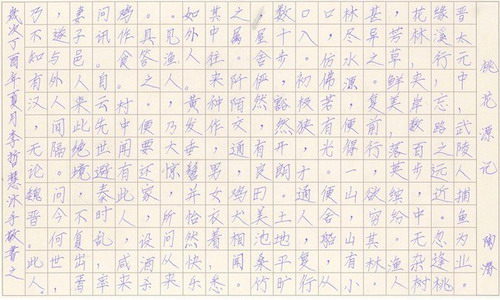 桃花源记 陶潜
晋太元中，武陵人捕鱼为业。
缘溪行，忘路之远近。忽逢桃
花林，夹岸数百步，中无杂树
，芳草鲜美，落英缤纷。渔人
甚异之。复前行，欲穷其林，
林尽水源，便得一山，山有小
口，仿佛若有光。便舍船，从
口入。初极狭，才通人。复行
数十步，豁然开朗。土地平旷
，屋舍俨然，有良田美池桑竹
之属。阡陌交通，鸡犬相闻。
其中往来种作，男女衣着，悉
如外人。黄发垂髫，并怡然乐
。见渔人，乃大惊，问所从来
。具答之。便要还家，设酒杀
鸡。作食。村中闻有此人，咸来
问讯。自云先世避秦时乱，率
妻子邑人来此绝境，不复出焉
，遂与外人间隔。问今何世，
乃不知有汉，无论魏晋。此人。
岁次丁酉年夏月李哲慧沐手敬书之